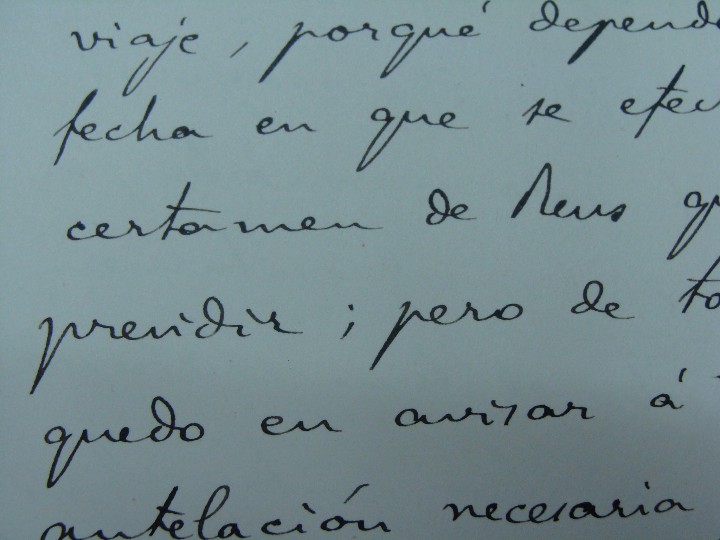 viaje, porqué depend
fecha en que se efec
certamen de Reus qu
presidir; pero de to
quedo en avisar á
antelación necesaria